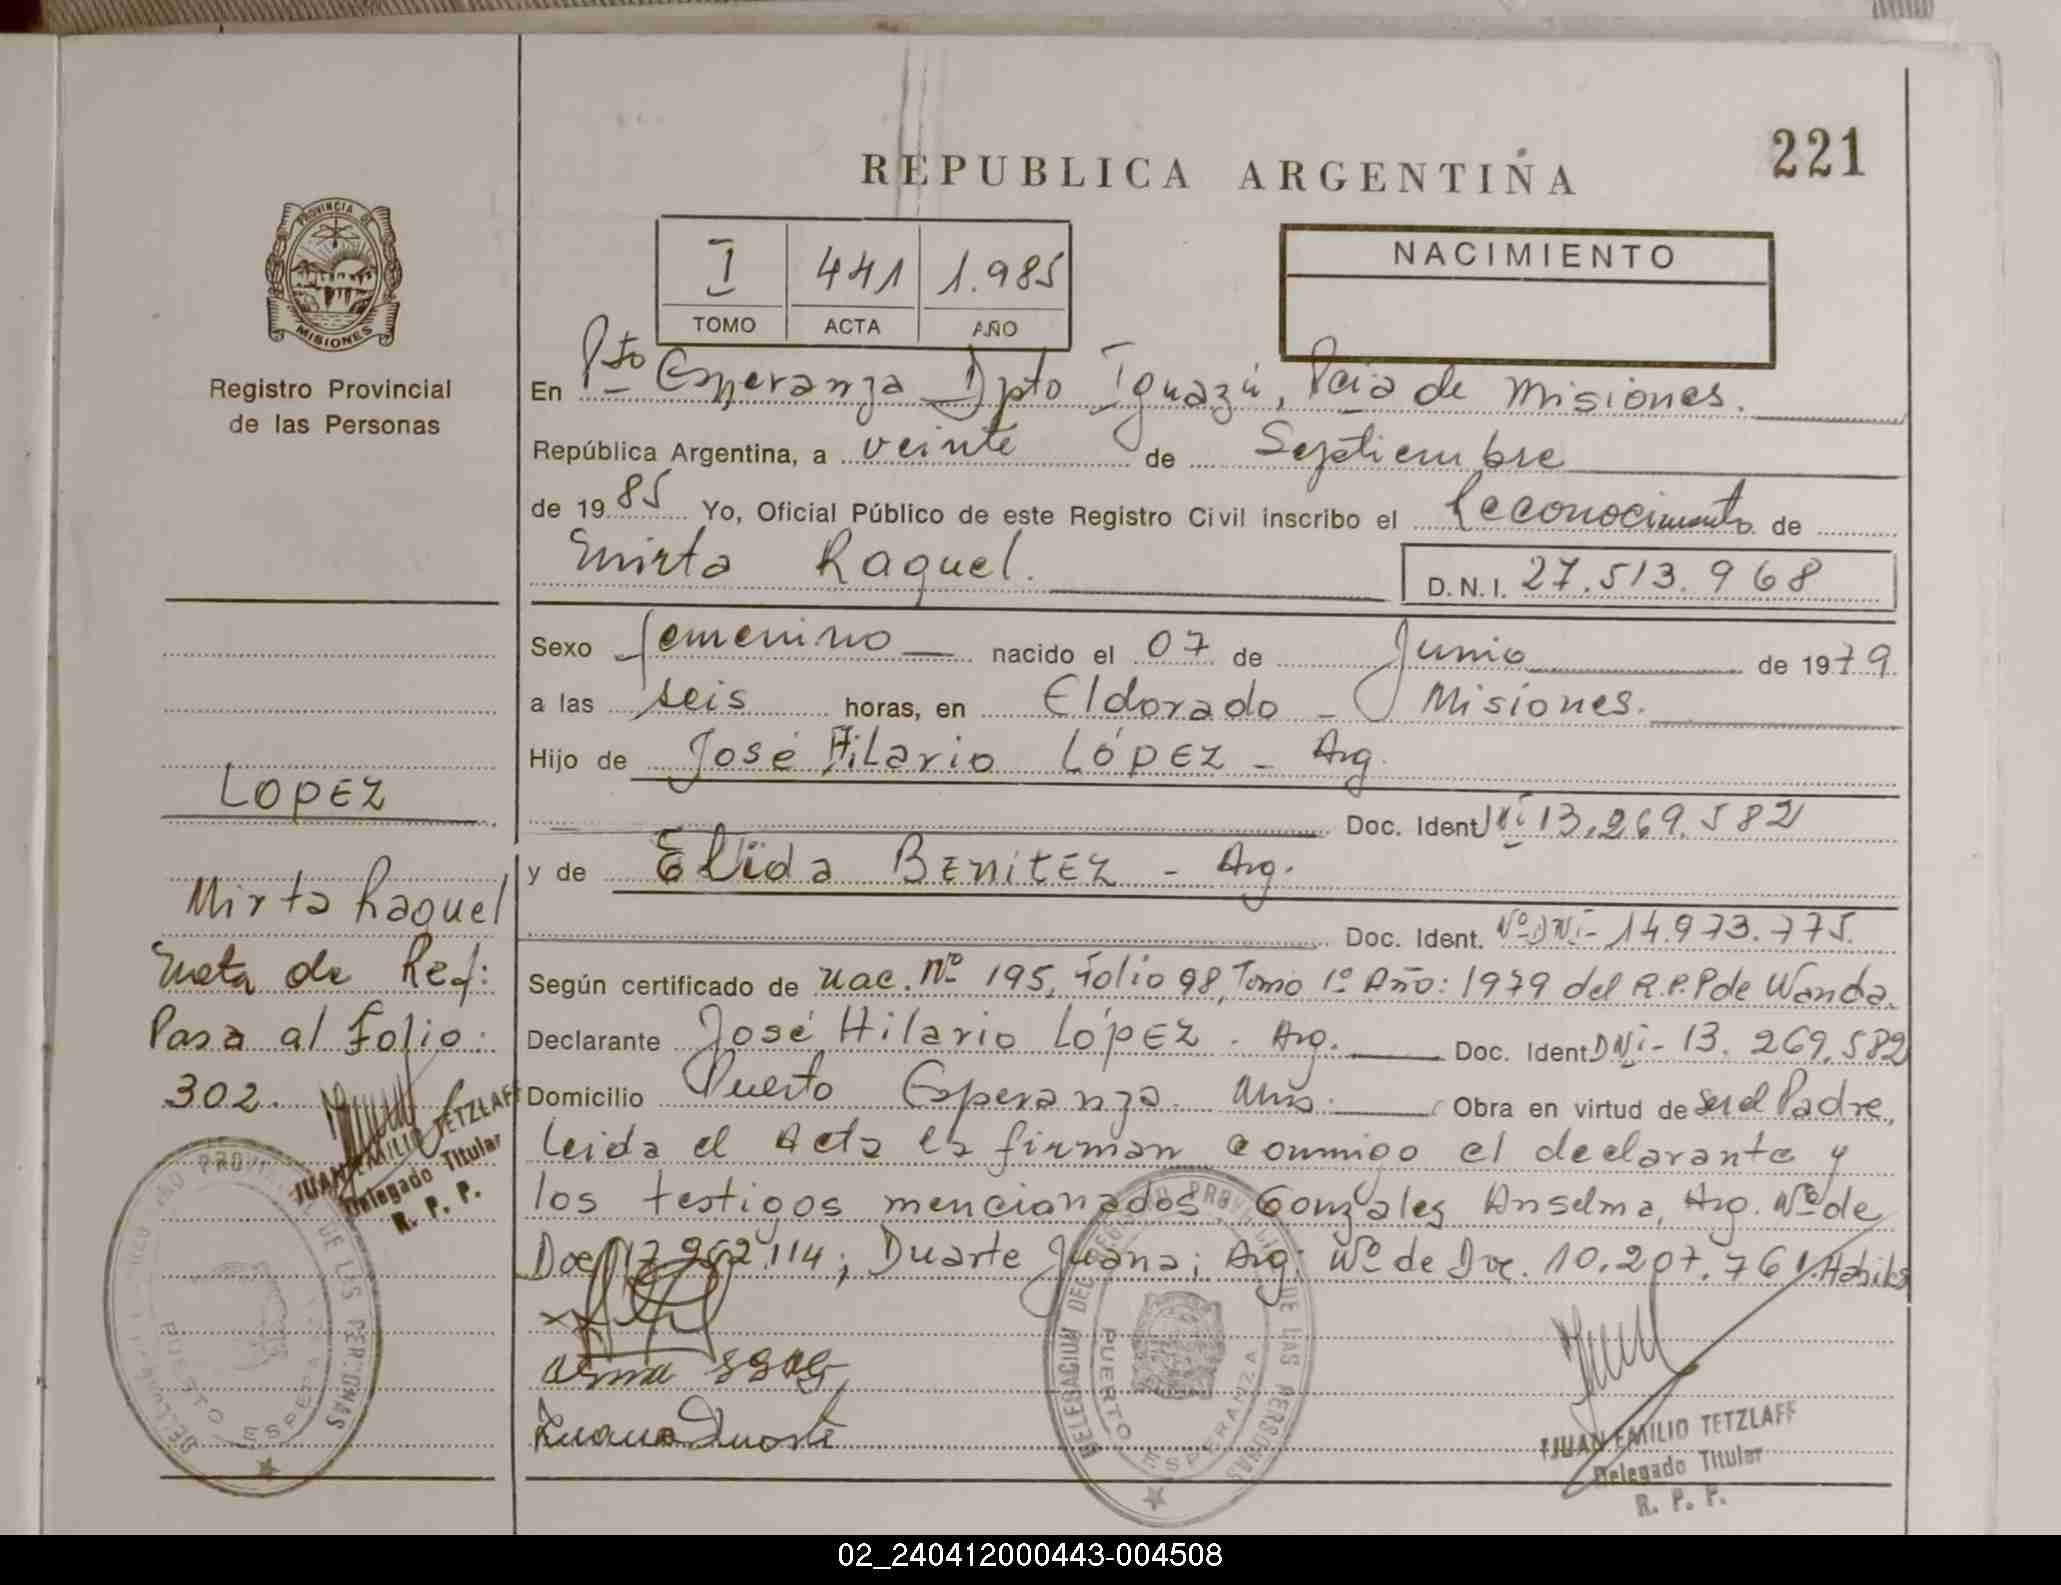 221
REPUBLICA ARGENTINA
PROVINCIA DE
MISIONES
Registro Provincial
de las Personas
I 441 1.985
TOMO ACTA AÑO
NACIMIENTO
En Pto Esperanza Dpto Iguazú, Pcia de Misiones.
República Argentina, a veinte de Septiembre
de 1985 Yo, Oficial Público de este Registro Civil inscribo el Reconocimiento de
Mirta Raquel.
D.N.I. 27.513.968
Sexo femenino nacido el 07 de Junio de 1979
a las seis horas, en Eldorado - Misiones.
Hijo de José Hilario LÓPEZ - Arg.
Doc. Ident 13.269.582
y de Elida BENITEZ - Arg.
Doc. Ident. Nº DNi - 14.973.775.
Según certificado de nac. Nº 195, Folio 98, Tomo 1º Año: 1979 del R.P.P de Wanda.
Declarante José Hilario LópEZ - Arg. Doc. Ident DNi - 13.269.582
Domicilio Puerto Esperanza Mnes. Obra en virtud de ser el Padre,
leida el Acta la firman conmigo el declarante y
los testigos mencionados. Gonzales Anselma, Arg. Nº de
Doc. 114; Duarte Juana; Arg. Nº de Doc. 10.207.761. Habiles
Juana Duarte
LOPEZ
Mirta Raquel
Nota de Ref:
Pasa al folio:
302.
JUAN EMILIO TETZLAFF
Delegado Titular
R. P. P.
PUERTO ESPERANZA
DELEGACION DEL REGISTRO PROVINCIAL DE LAS PERSONAS
PUERTO ESPERANZA
JUAN EMILIO TETZLAFF
Delegado Titular
R. P. P.
02_240412000443-004508